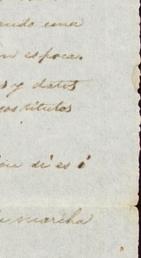 endo una
n espoca
s y datos
os titulos
si es ó
marcha